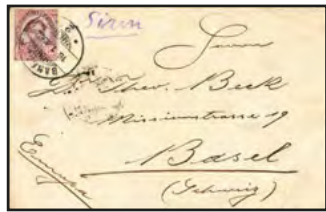 Siren
Herrn
Dr. Theo. Beck
Missionsstrasse 19
Basel
(Schweiz)
Europa
BANG